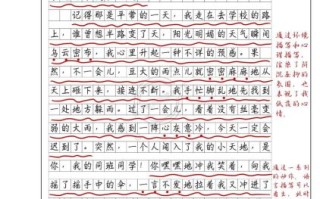 记得那是平常的一天，我走在去学校的路
上，谁曾想半路变了天，阳光明媚的天气瞬间
乌云密布，我心里升起一种不祥的预感。果
然，不一会儿，豆大的雨点儿就密密麻麻地从
天上打来，接连不断。我手忙脚乱地先找到一
处地方躲雨。过了一会儿，看着没有丝毫变
弱的大雨，我感到一阵心在意冷，今天一定会
迟到了。突然，一个人闯入了我的小天地，是
你，我的同班同学！你嘿嘿地冲我笑着，向我
摇了摇手中的伞，一言不发地拉着我又冲进了
通过环境
描写和心理
描写，
沉闷压抑
的氛围，也
表现了我
低落的心
境。
通过一系列
的动作、语
言描写可以
看出，我对